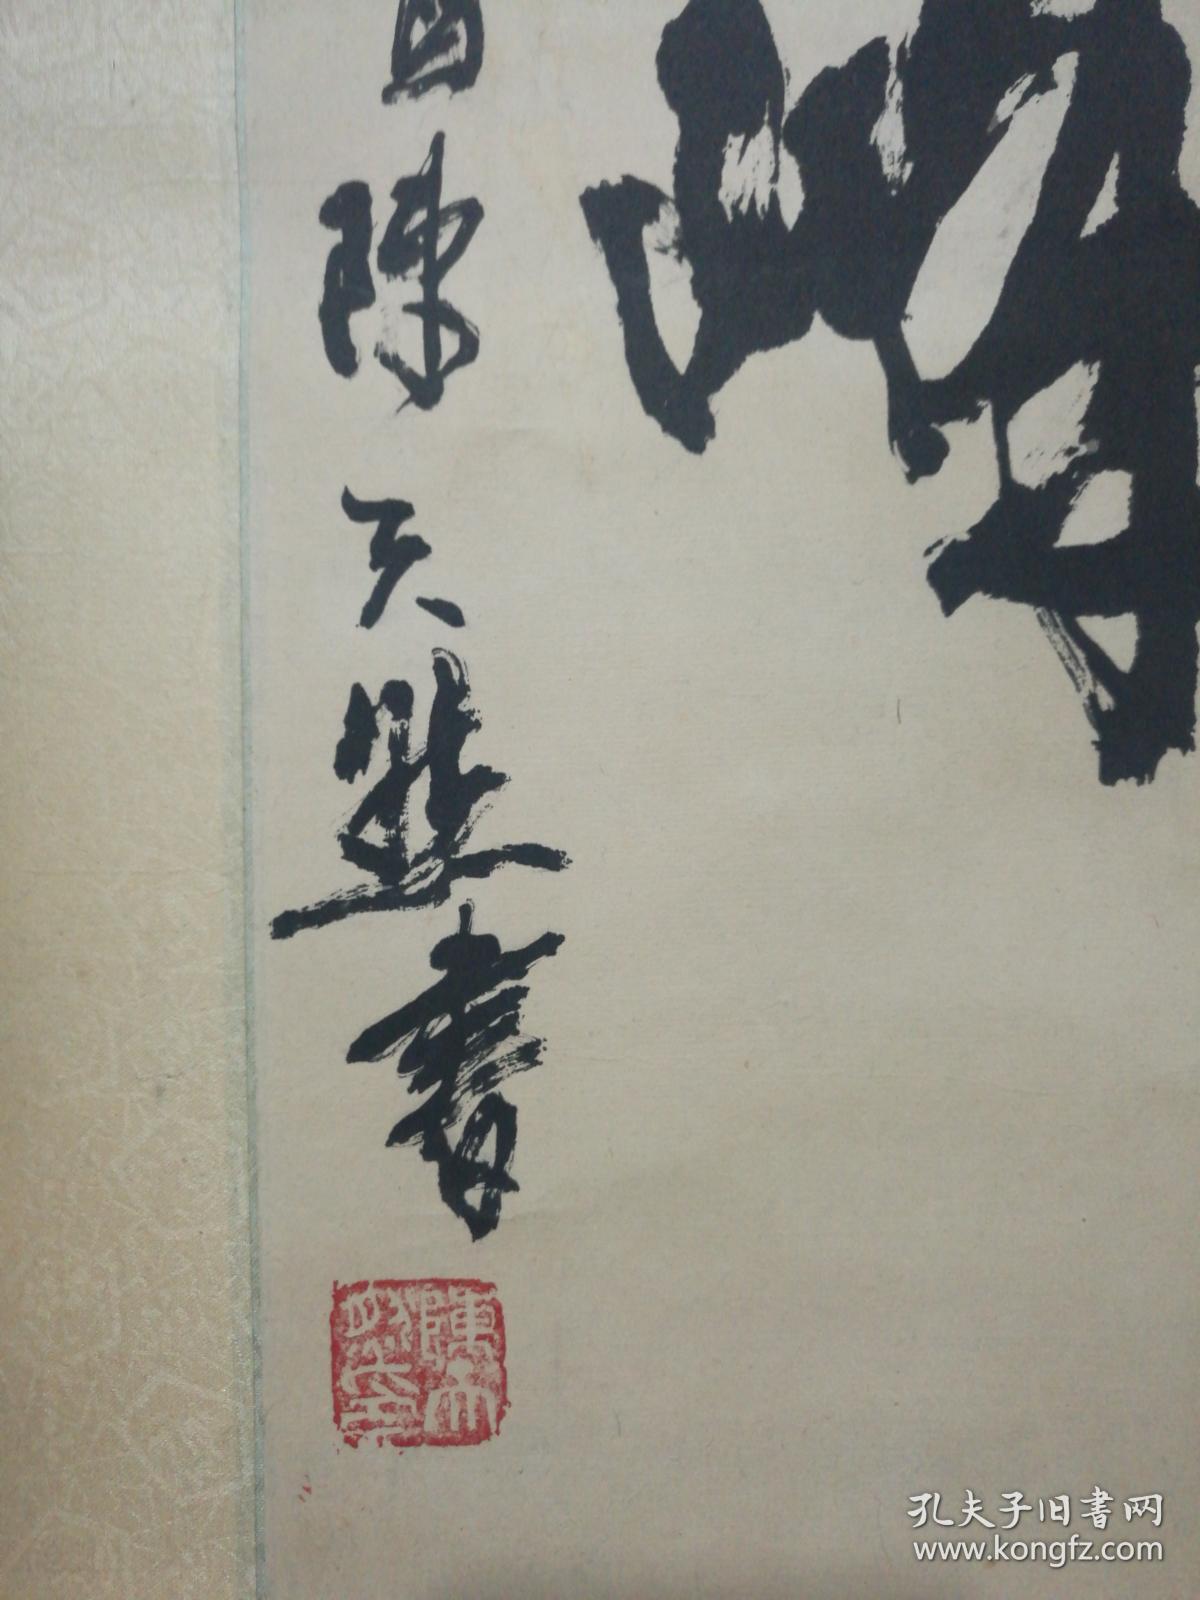 陳天然書
陳天然印
孔夫子旧书网
www.kongfz.com